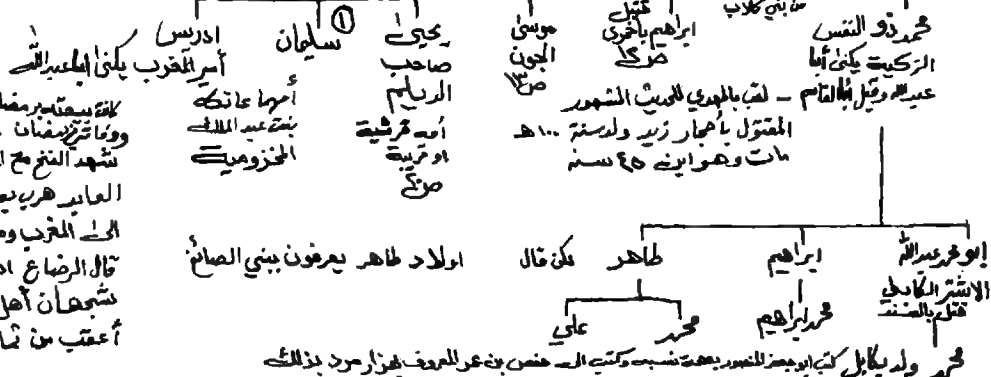 من بني كلاب
محمد ذو النفس
الزكية يكنى أبا
عبدالله وقيل أبا القاسم - لقب بالمهدي للحديث المشهور
المقتول بأحجار زيت ولد سنة ١٠٠ هـ
مات وهو ابن ٤٥ سنه
قتيل
ابراهيم باخمرى
ص١٢
موسى
الجون
ص١٣
يحيى
صاحب
الديلم
أمه قرشية
او قريبة
ص٢٠
①
سليمان
أمهما عاتكة
بنت عبد الملك
المخزومية
ادريس
أمير المغرب يكنى ابا عبدالله
شهد الفخ مع
العابد هرب
الى المغرب
قال الرضاع
أهل
أعقب من
ابو محمد عبدالله
الاشتر الكابلي
قتل بالسند
ابراهيم
محمد ابراهيم
طاهر
محمد
علي
لكن قال
اولاد طاهر يعرفون ببني الصائغ
محمد ولد بكابل كتب ابو جعفر المنصور بصحة نسبه وكتب الى حفص بن عمر المعروف بهزار مرد بذلك